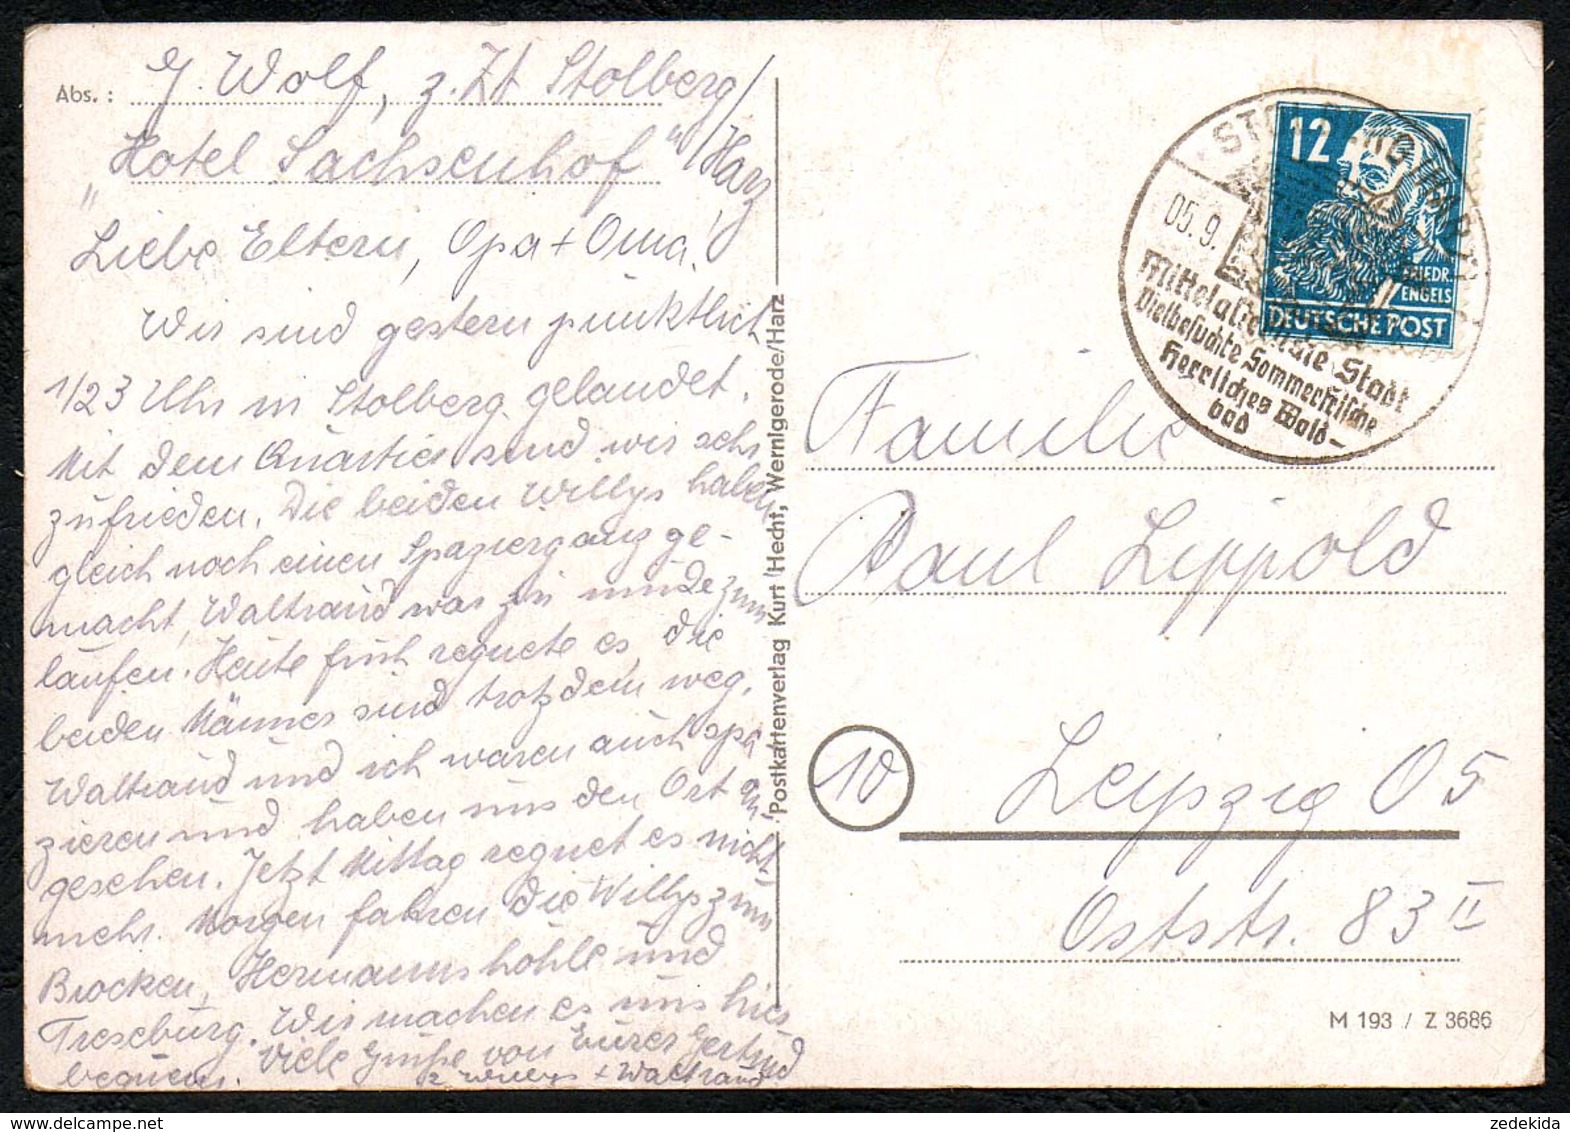 Abs.: G. Wolf, z. Zt Stolberg/
"Hotel Sachsenhof" Harz
Liebe Eltern, Opa + Oma!
Wir sind gestern pünktlich
1/2 3 Uhr in Stolberg gelandet.
Mit dem Quartier sind wir sehr
zufrieden. Die beiden Willys haben
gleich noch einen Spaziergang ge-
macht, Waltraud war zu müde zum
laufen. Heute früh regnete es, die
beiden Männer sind trotzdem weg.
Waltraud und ich waren auch spa
zieren und haben uns den Ort an
gesehen. Jetzt Mittag regnet es nicht
mehr. Morgen fahren die Willys zum
Brocken, Hermannshöhle und
Treseburg. Wir machen es uns hier
bequem. Viele Grüße von Eurer Gertrud
2 Willys + Waltraud
Postkartenverlag Kurt Hecht, Wernigerode/Harz
12
FRIEDR.
ENGELS
DEUTSCHE POST
05.9.
Mittelalterliche Stadt
Vielbesuchte Sommerfrische
Herrliches Wald-
bad
Familie
Paul Lippold
10
Leipzig O5
Oststr. 83 II
M 193 / Z 3686
zedekida